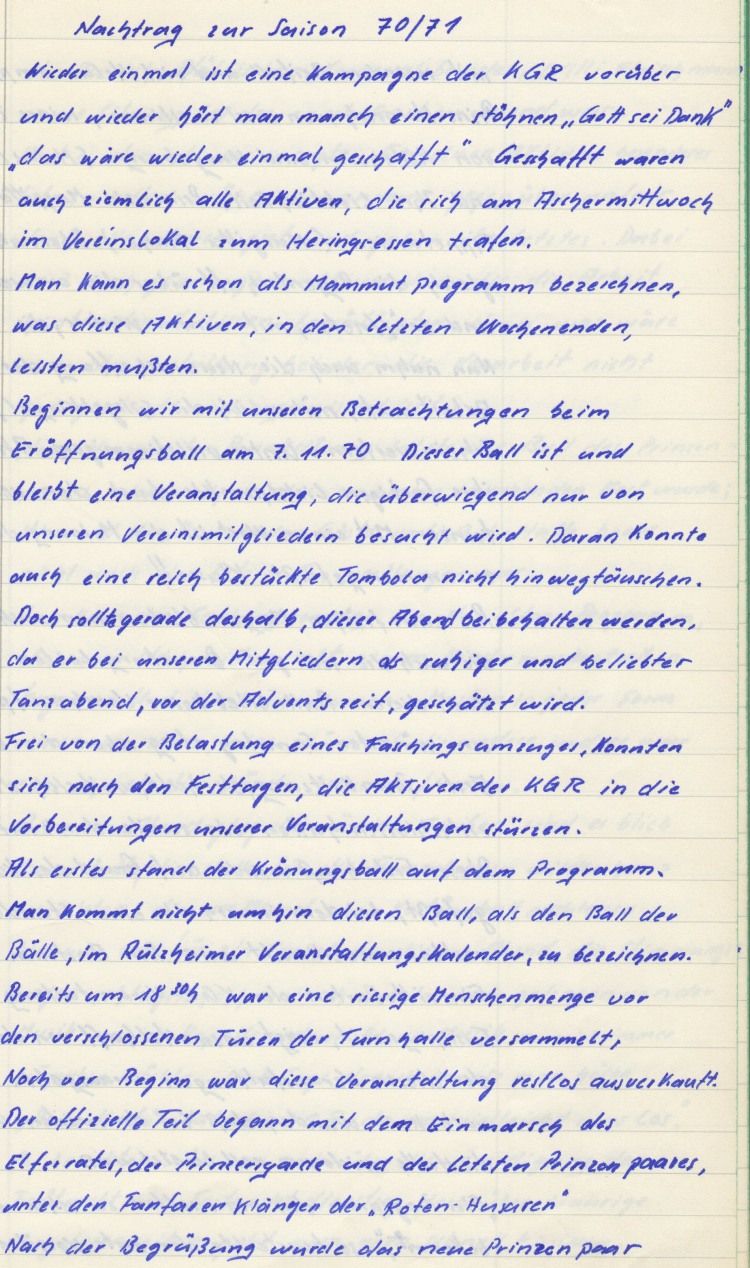 Nachtrag zur Saison 70/71
Wieder einmal ist eine Kampagne der KGR vorüber
und wieder hört man manch einen stöhnen „Gott sei Dank"
„das wäre wieder einmal geschafft" Geschafft waren
auch ziemlich alle Aktiven, die sich am Aschermittwoch
im Vereinslokal zum Heringsessen trafen.
Man kann es schon als Mammutprogramm bezeichnen,
was diese Aktiven, in den letzten Wochenenden,
leisten mußten.
Beginnen wir mit unseren Betrachtungen beim
Eröffnungsball am 7. 11. 70 Dieser Ball ist und
bleibt eine Veranstaltung, die überwiegend nur von
unseren Vereinsmitgliedern besucht wird. Daran konnte
auch eine reich bestückte Tombola nicht hinwegtäuschen.
Doch sollte gerade deshalb, dieser Abend beibehalten werden,
da er bei unseren Mitgliedern als ruhiger und beliebter
Tanzabend, vor der Adventszeit, geschätzt wird.
Frei von der Belastung eines Faschingsumzuges, konnten
sich nach den Festtagen, die Aktiven der KGR in die
Vorbereitungen unserer Veranstaltungen stürzen.
Als erstes stand der Krönungsball auf dem Programm.
Man kommt nicht umhin diesen Ball, als den Ball der
Bälle, im Rülzheimer Veranstaltungskalender, zu bezeichnen.
Bereits um 18 30h war eine riesige Menschenmenge vor
den verschlossenen Türen der Turnhalle versammelt,
Noch vor Beginn war diese Veranstaltung restlos ausverkauft.
Der offizielle Teil begann mit dem Einmarsch des
Elferrates, der Prinzengarde und des letzten Prinzenpaares,
unter den Fanfaren Klängen der „Roten-Husaren"
Nach der Begrüßung wurde das neue Prinzenpaar